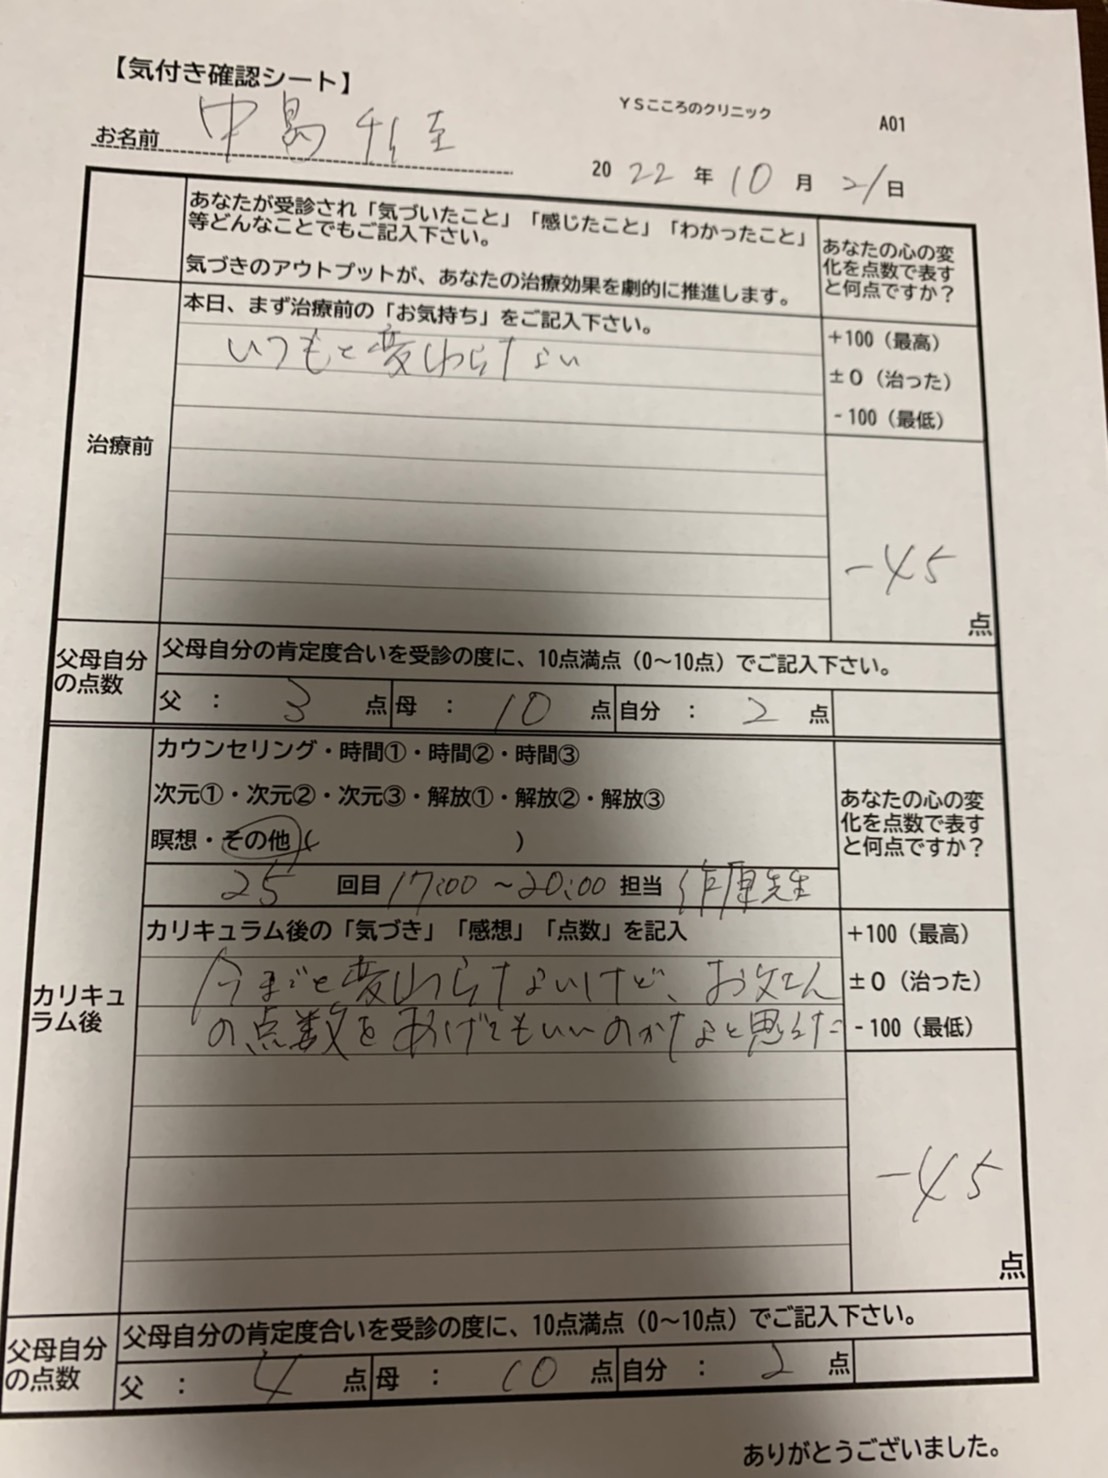 【気付き確認シート】
YSこころのクリニック
A01
お名前 中島
2022年10月21日
あなたが受診され「気づいたこと」「感じたこと」「わかったこと」
等どんなことでもご記入下さい。
気づきのアウトプットが、あなたの治療効果を劇的に推進します。
あなたの心の変
化を点数で表す
と何点ですか？
治療前
本日、まず治療前の「お気持ち」をご記入下さい。
いつもと変わらない
+100（最高）
±0（治った）
-100（最低）
-45
点
父母自分
の点数
父母自分の肯定度合いを受診の度に、10点満点（0～10点）でご記入下さい。
父 ： 3 点 母 ： 10 点 自分 ： 2 点
カリキュ
ラム後
カウンセリング・時間①・時間②・時間③
次元①・次元②・次元③・解放①・解放②・解放③
瞑想・その他（ ）
25 回目 17:00 ～20:00 担当 原先生
あなたの心の変
化を点数で表す
と何点ですか？
カリキュラム後の「気づき」「感想」「点数」を記入
今までと変わらないけど、お父さん
の点数をあげてもいいのかなと思えた
+100（最高）
±0（治った）
-100（最低）
-45
点
父母自分
の点数
父母自分の肯定度合いを受診の度に、10点満点（0～10点）でご記入下さい。
父 ： 4 点 母 ： 10 点 自分 ： 2 点
ありがとうございました。